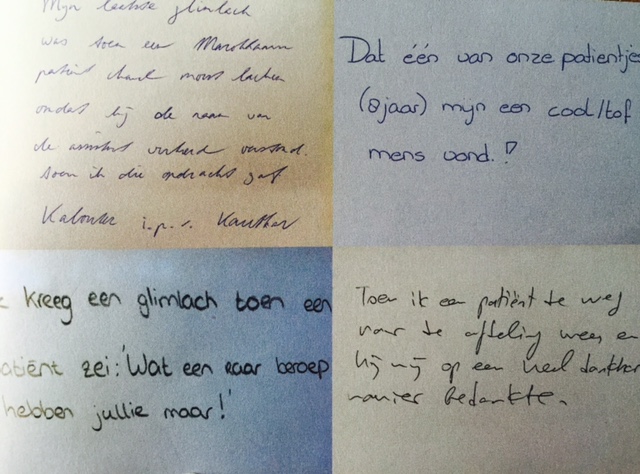 Mijn laatste glimlach
was toen een Marokkaanse
patiënt hard moest lachen
omdat hij de naam van
de assistent verkeerd verstond.
toen ik die opdracht gaf
i.p.v. Kauthar
Dat één van onze patientje
(8jaar) mijn een cool/tof
mens vond.!
kreeg een glimlach toen een
atiënt zei: 'Wat een raar beroep
hebben jullie maar!'
Toen ik een patiënt de weg
naar de afdeling wees en
hij mij op een heel dankbar
manier bedankte.